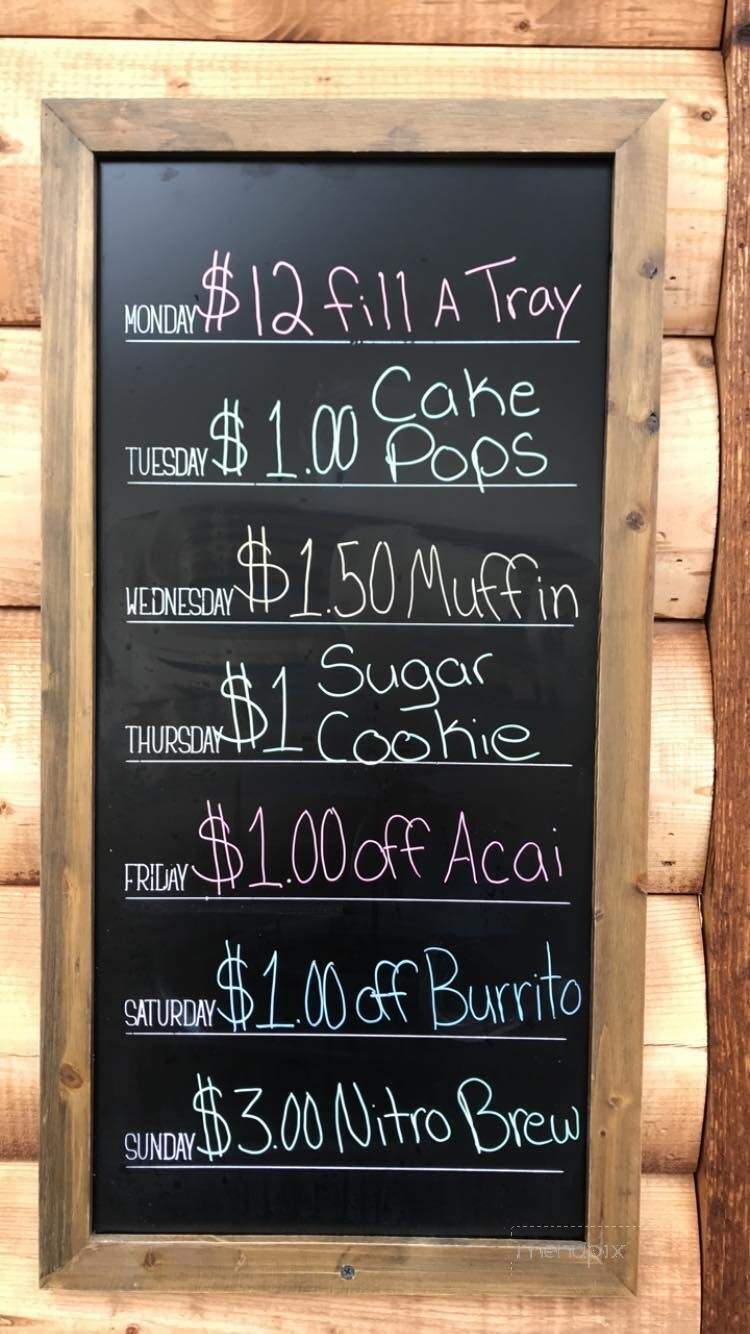 MONDAY $12 fill A Tray
Cake
TUESDAY $1.00 Pops
WEDNESDAY $1.50 Muffin
Sugar
THURSDAY $1 Cookie
FRIDAY $1.00 off Acai
SATURDAY $1.00 off Burrito
SUNDAY $3.00 Nitro Brew
menupix